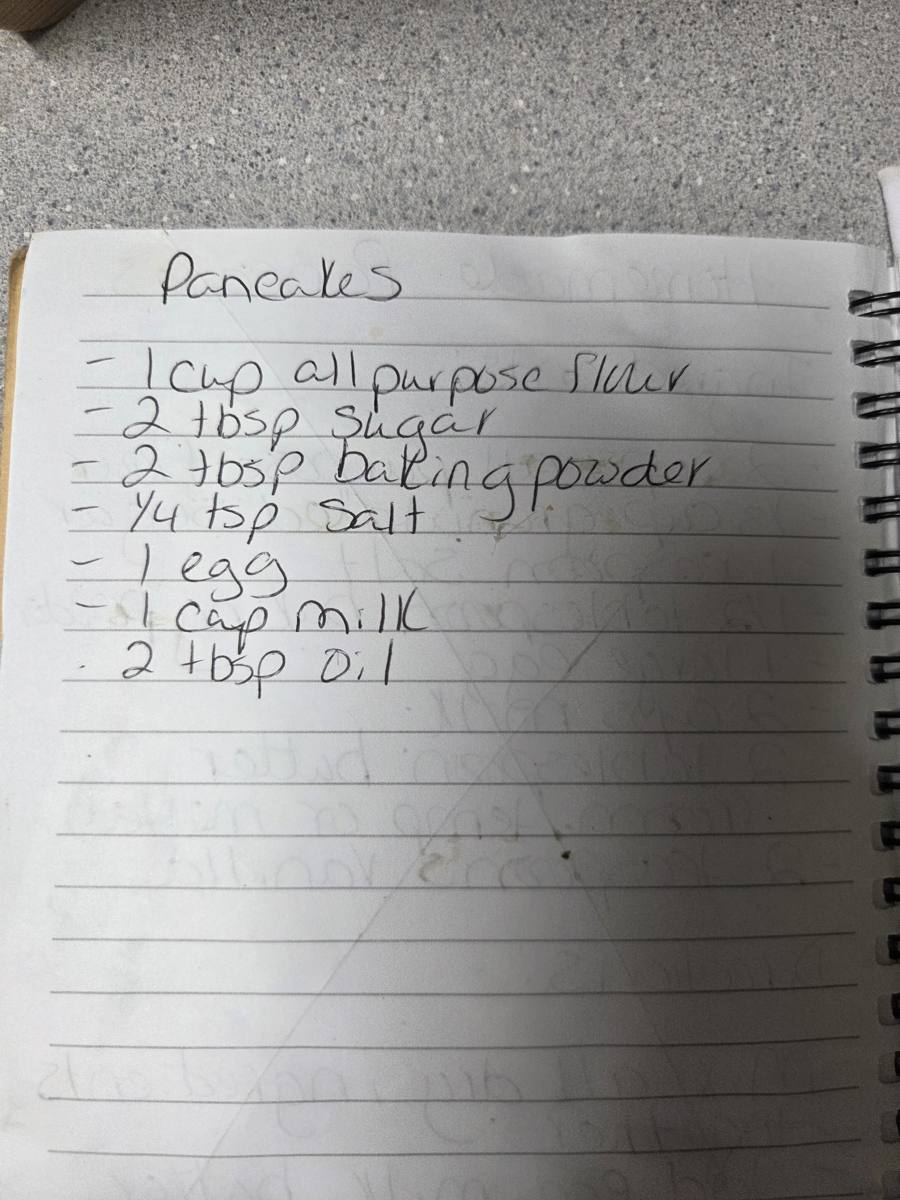 Pancakes
- 1 cup all purpose flour
- 2 tbsp sugar
- 2 tbsp baking powder
- 1/4 tsp salt
- 1 egg
- 1 cup milk
. 2 tbsp oil